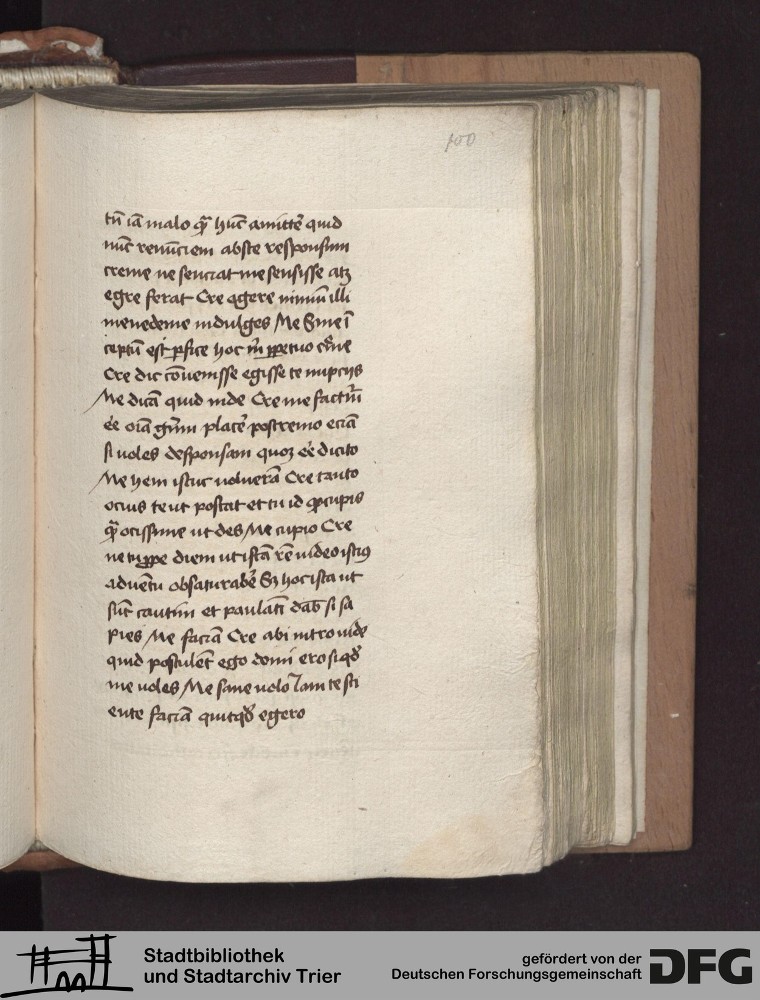 100
tū iā malo q̄ȝ hūc amittē quid
nūc renūciem abste responsum
creme ne senciat me sensisse atȝ
egre ferat Cre egere nimiū illi
menedeme indulges Me Sine ī
ceptū est ꝑfice hoc m̄ ꝑpetuo
Cre dic cōuenisse egisse te nupciis
Me dicā quid inde Cre me factū
eē oīa gn̄m placē postremo eciā
si uoles desponsam quoȝ eē dicito
Me hem istuc uoluerā Cre tanto
ocius te ut postat et tu id qd̄ cupis
q̄ȝ ocissime ut des Me cupio Cre
ne tu ꝓpe diem ut istā rē uideo istiꝰ
aduentu obsaturabē Sȝ hoc ista ut
sūt cautim et paulatī dab̄ si sa
pies Me faciā Cre abi intro uide
quid postulet ego domi ero si qd̄
me uoles Me sane uolo Nam te sci
ente faciā quitqd̄ egero
Stadtbibliothek
und Stadtarchiv Trier
gefördert von der
Deutschen Forschungsgemeinschaft
DFG